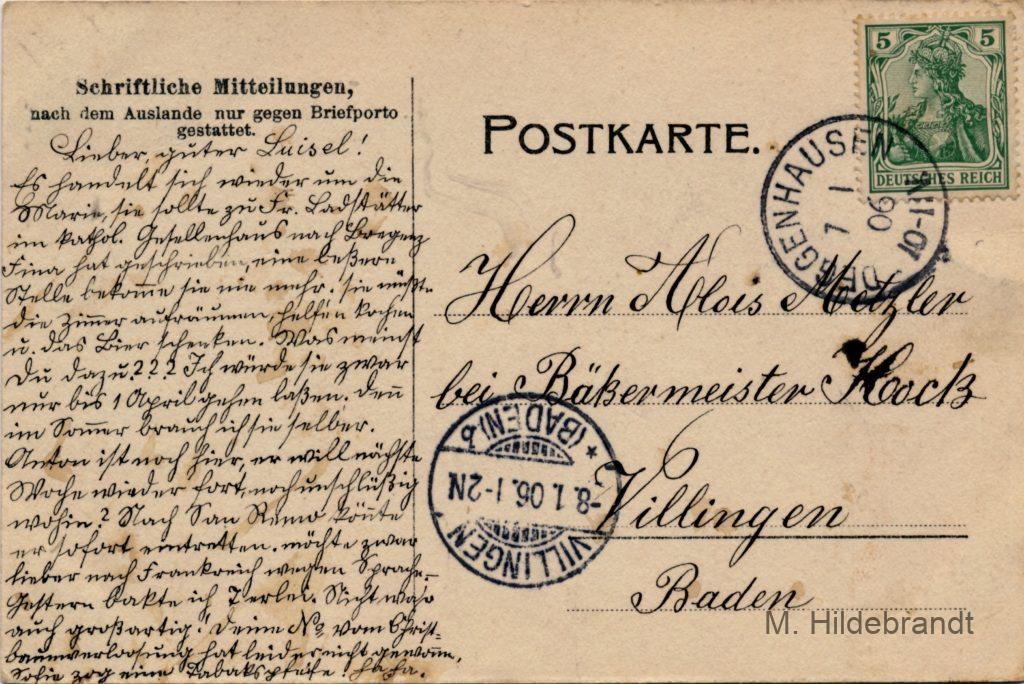 Schriftliche Mitteilungen,
nach dem Auslande nur gegen Briefporto
gestattet.
Lieber, guter Luisel!
Es handelt sich wieder um die
Marie, sie sollte zu Fr. Ladstätter
im kathol. Gesellenhaus nach Bregenz
Fina hat geschrieben, eine beßere
Stelle bekomme sie nie mehr. sie müßte
die Zimmer aufräumen, helfen kochen
u. das Bier schenken. Was meinst
Du dazu??? Ich würde sie zwar
nur bis 1 April gehen laßen. Den̄
im Som̄er brauch ich sie selber.
Anton ist noch hier, er will nächste
Woche wieder fort, noch unschlüßig
wohin? Nach San Remo kön̄te
er sofort eintretten. möchte zwar
lieber nach Frankreich wegen Sprache.
Gestern bakte ich 7erlei. Nicht wahr
auch großartig! Deine No vom Christ-
baumverloosung hat leider nicht gewon̄e,
Sofie zog eine Tabakspfeife! ha ha.
POSTKARTE.
5 5
DEUTSCHES REICH
DEGGENHAUSEN
7 1 06
VII-01
Herrn Alois Metzler
bei Bäkermeister Hock
Villingen
Baden
VILLINGEN
-8.1.06.1-2N
* (BADEN).b
M. Hildebrandt